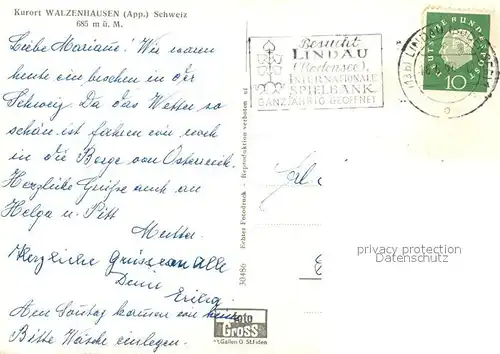 Kurort WALZENHAUSEN (App.) Schweiz
685 m ü. M.
Liebe Mariane! Wir waren
heute ein bischen in der
Schweiz. Da das Wetter so
schön ist fahren wir noch
in die Berge von Österreich.
Herzliche Grüße auch an
Helga u. Pitt
Mutter.
Herzliche Grüsse an Alle
Am Sontag kommen wir heim
Bitte Wäsche einlegen.
30486 Echter Fotodruck - Reproduktion verboten
Foto
GROSS
St. Gallen O St. Fiden
Besucht
LINDAU
(Bodensee),
INTERNATIONALE
SPIELBANK
GANZJÄHRIG GEÖFFNET
LINDAU
DEUTSCHE BUNDESPOST
10
privacy protection
Datenschutz